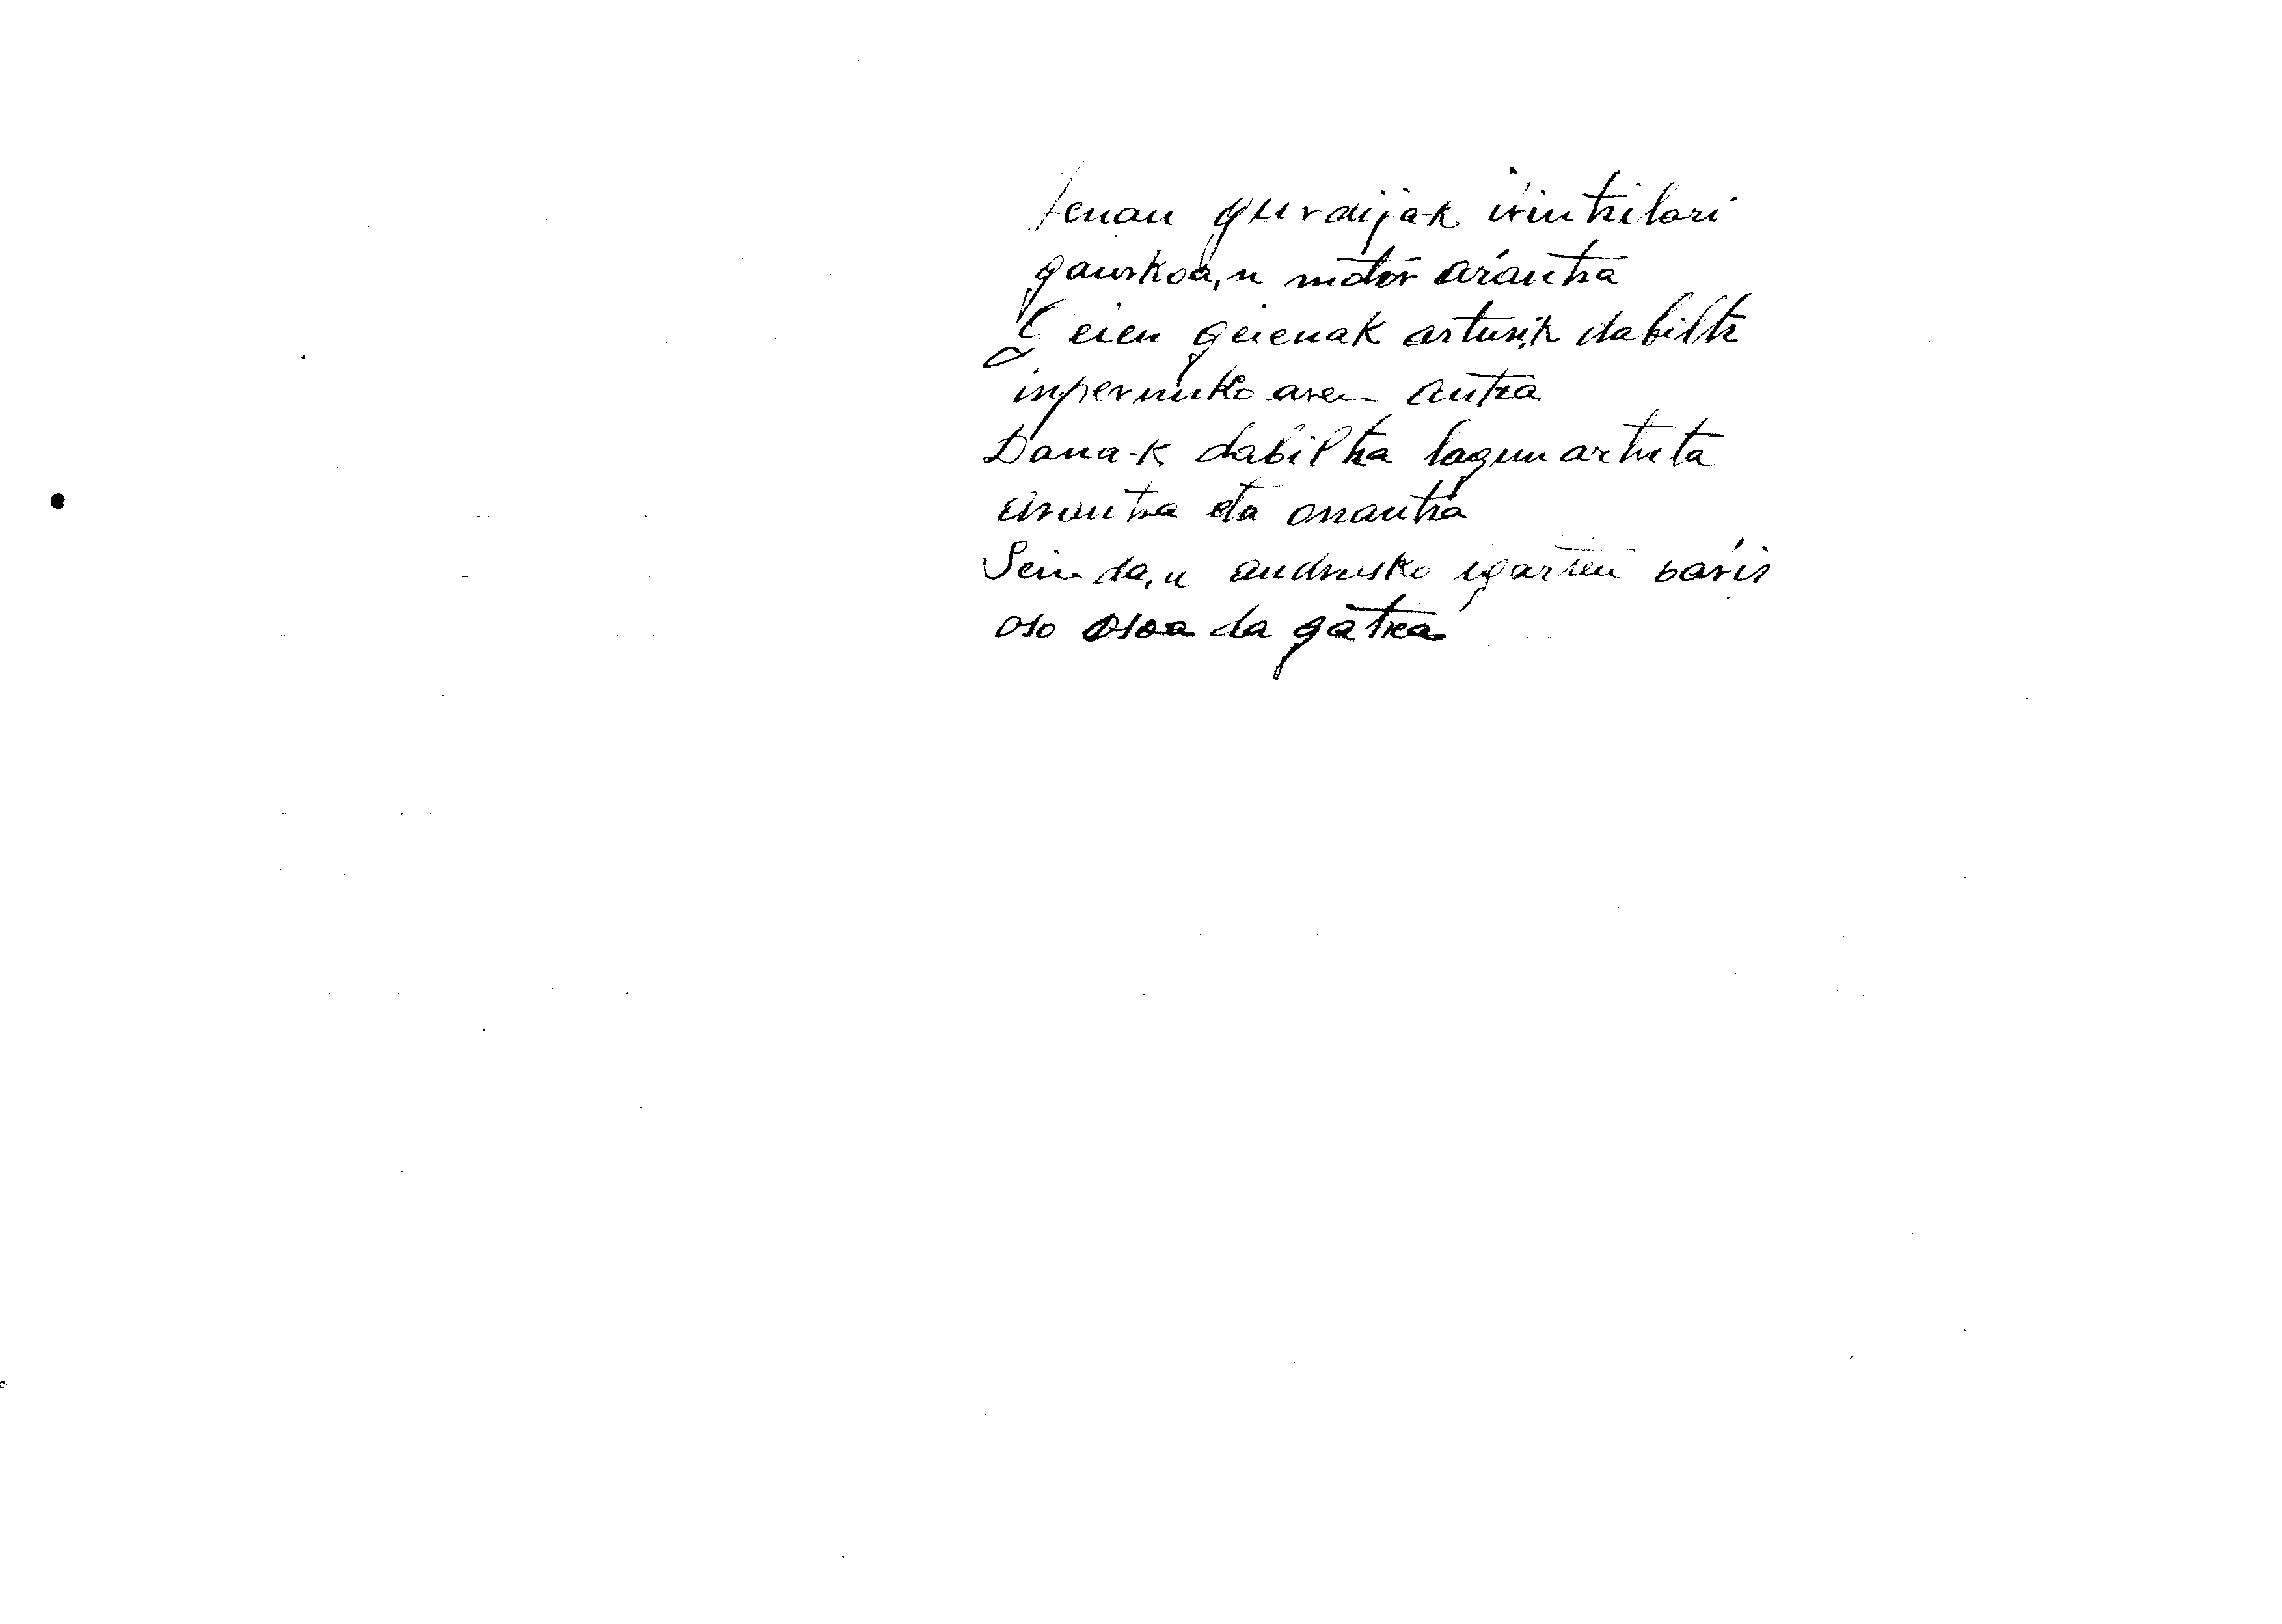 Lenau gurdijak iŕintzilari
gaurkoa,u motoŕ aŕantza
Geien geienak artusik dabiltz
inpernuko aren antza
Dana-k dabiltza lagun artuta
arantza eta onantza
Sein da,u andrasko igarten baŕis
oso osoa da gatza